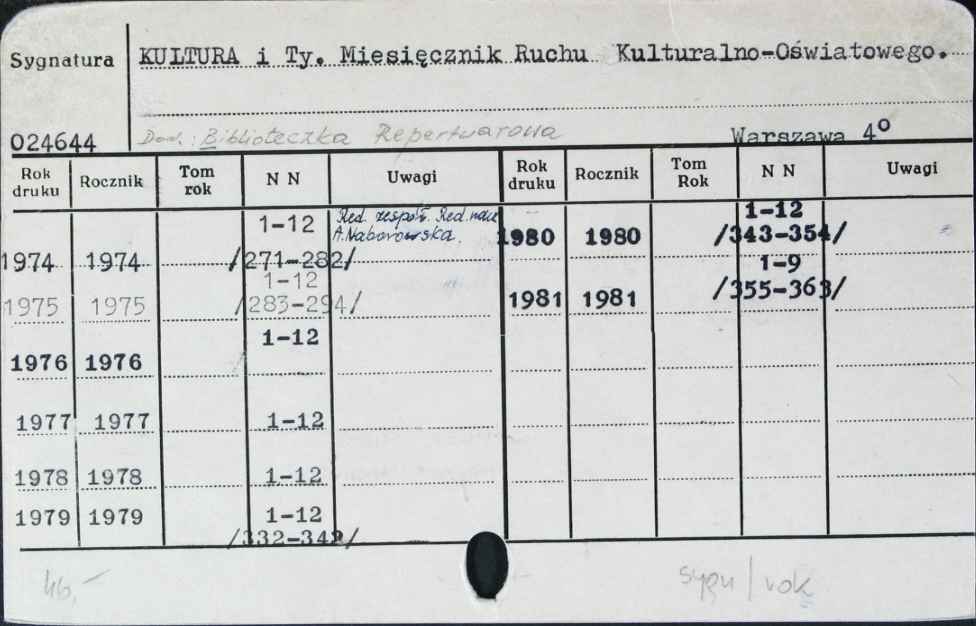 Sygnatura KULTURA i Ty. Miesięcznik Ruchu Kulturalno-Oświatowego.
024644 Dod.: Biblioteczka Repertuarowa Warszawa 4°
Rok druku Rocznik Tom rok N N Uwagi Rok druku Rocznik Tom Rok N N Uwagi
1974 1974 1-12 /271-282/ Red. zespół. Red. nacz A. Naborowska. 1980 1980 1-12 /343-354/
1975 1975 1-12 /283-294/ 1981 1981 1-9 /355-363/
1976 1976 1-12
1977 1977 1-12
1978 1978 1-12
1979 1979 1-12 /332-342/
sygn/rok